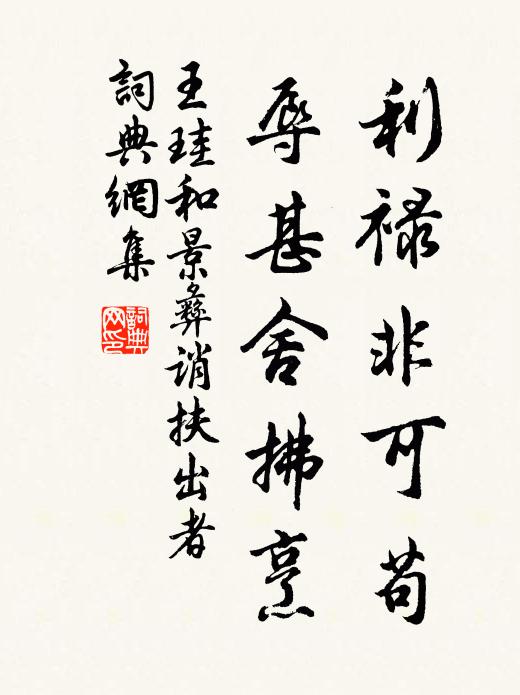 利祿非可苟
辱甚舍拂烹
王珪和景彝誚扶出者
詞典網集
詞典网印